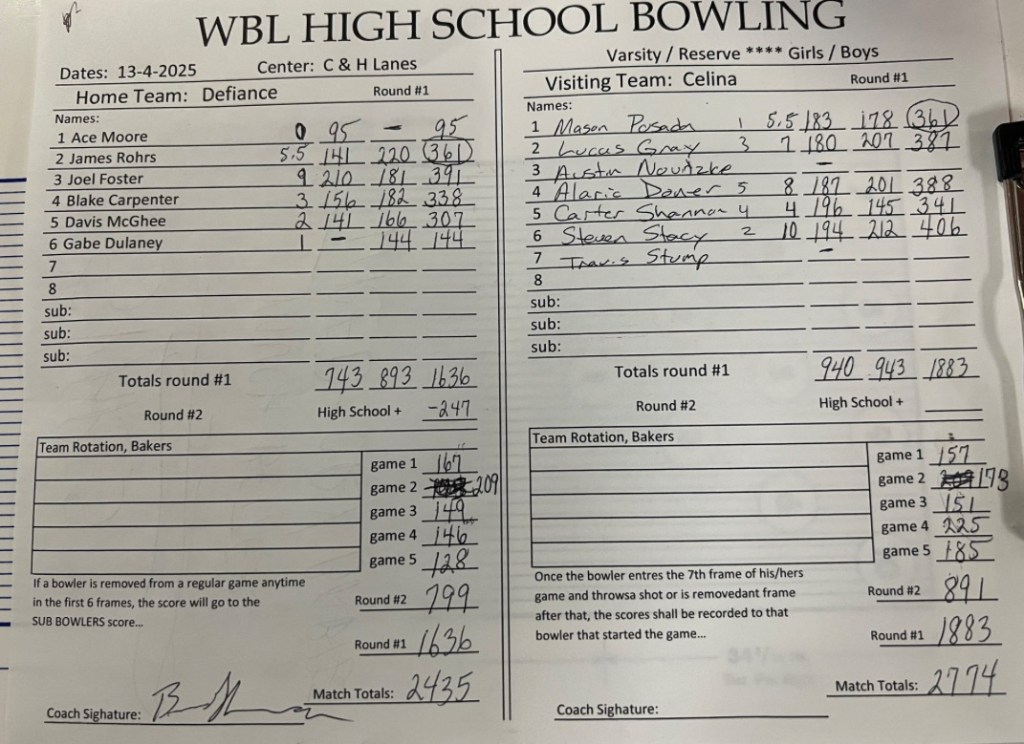 WBL HIGH SCHOOL BOWLING
Dates: 13-4-2025 Center: C & H Lanes
Home Team: Defiance Round #1
Names:
1 Ace Moore 0 95 — 95
2 James Rohrs 5.5 141 220 361
3 Joel Foster 9 210 181 391
4 Blake Carpenter 3 156 182 338
5 Davis McGhee 2 141 166 307
6 Gabe Dulaney 1 - 144 144
7
8
sub:
sub:
sub:
Totals round #1 743 893 1636
Round #2 High School + -247
Team Rotation, Bakers
game 1 167
game 2 209
game 3 149
game 4 146
game 5 128
If a bowler is removed from a regular game anytime
in the first 6 frames, the score will go to the
SUB BOWLERS score...
Round #2 799
Round #1 1636
Match Totals: 2435
Coach Signature:
Varsity / Reserve **** Girls / Boys
Visiting Team: Celina Round #1
Names:
1 Mason Posada 1 5.5 183 178 361
2 Lucas Gray 3 7 180 207 387
3 Austin -
4 Alaric Dower 5 8 187 201 388
5 Carter Shannon 4 4 196 145 341
6 Steven Stacy 2 10 194 212 406
7 Travis Stump -
8
sub:
sub:
sub:
Totals round #1 940 943 1883
Round #2 High School +
Team Rotation, Bakers
game 1 157
game 2 173
game 3 151
game 4 225
game 5 185
Once the bowler entres the 7th frame of his/hers
game and throwsa shot or is removedant frame
after that, the scores shall be recorded to that
bowler that started the game...
Round #2 891
Round #1 1883
Match Totals: 2774
Coach Signature: